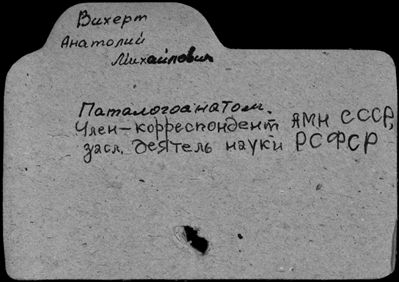 Вихерт
Анатолий
Михайлович
Паталогоанатом.
Член-корреспондент АМН СССР,
засл. деятель науки РСФСР